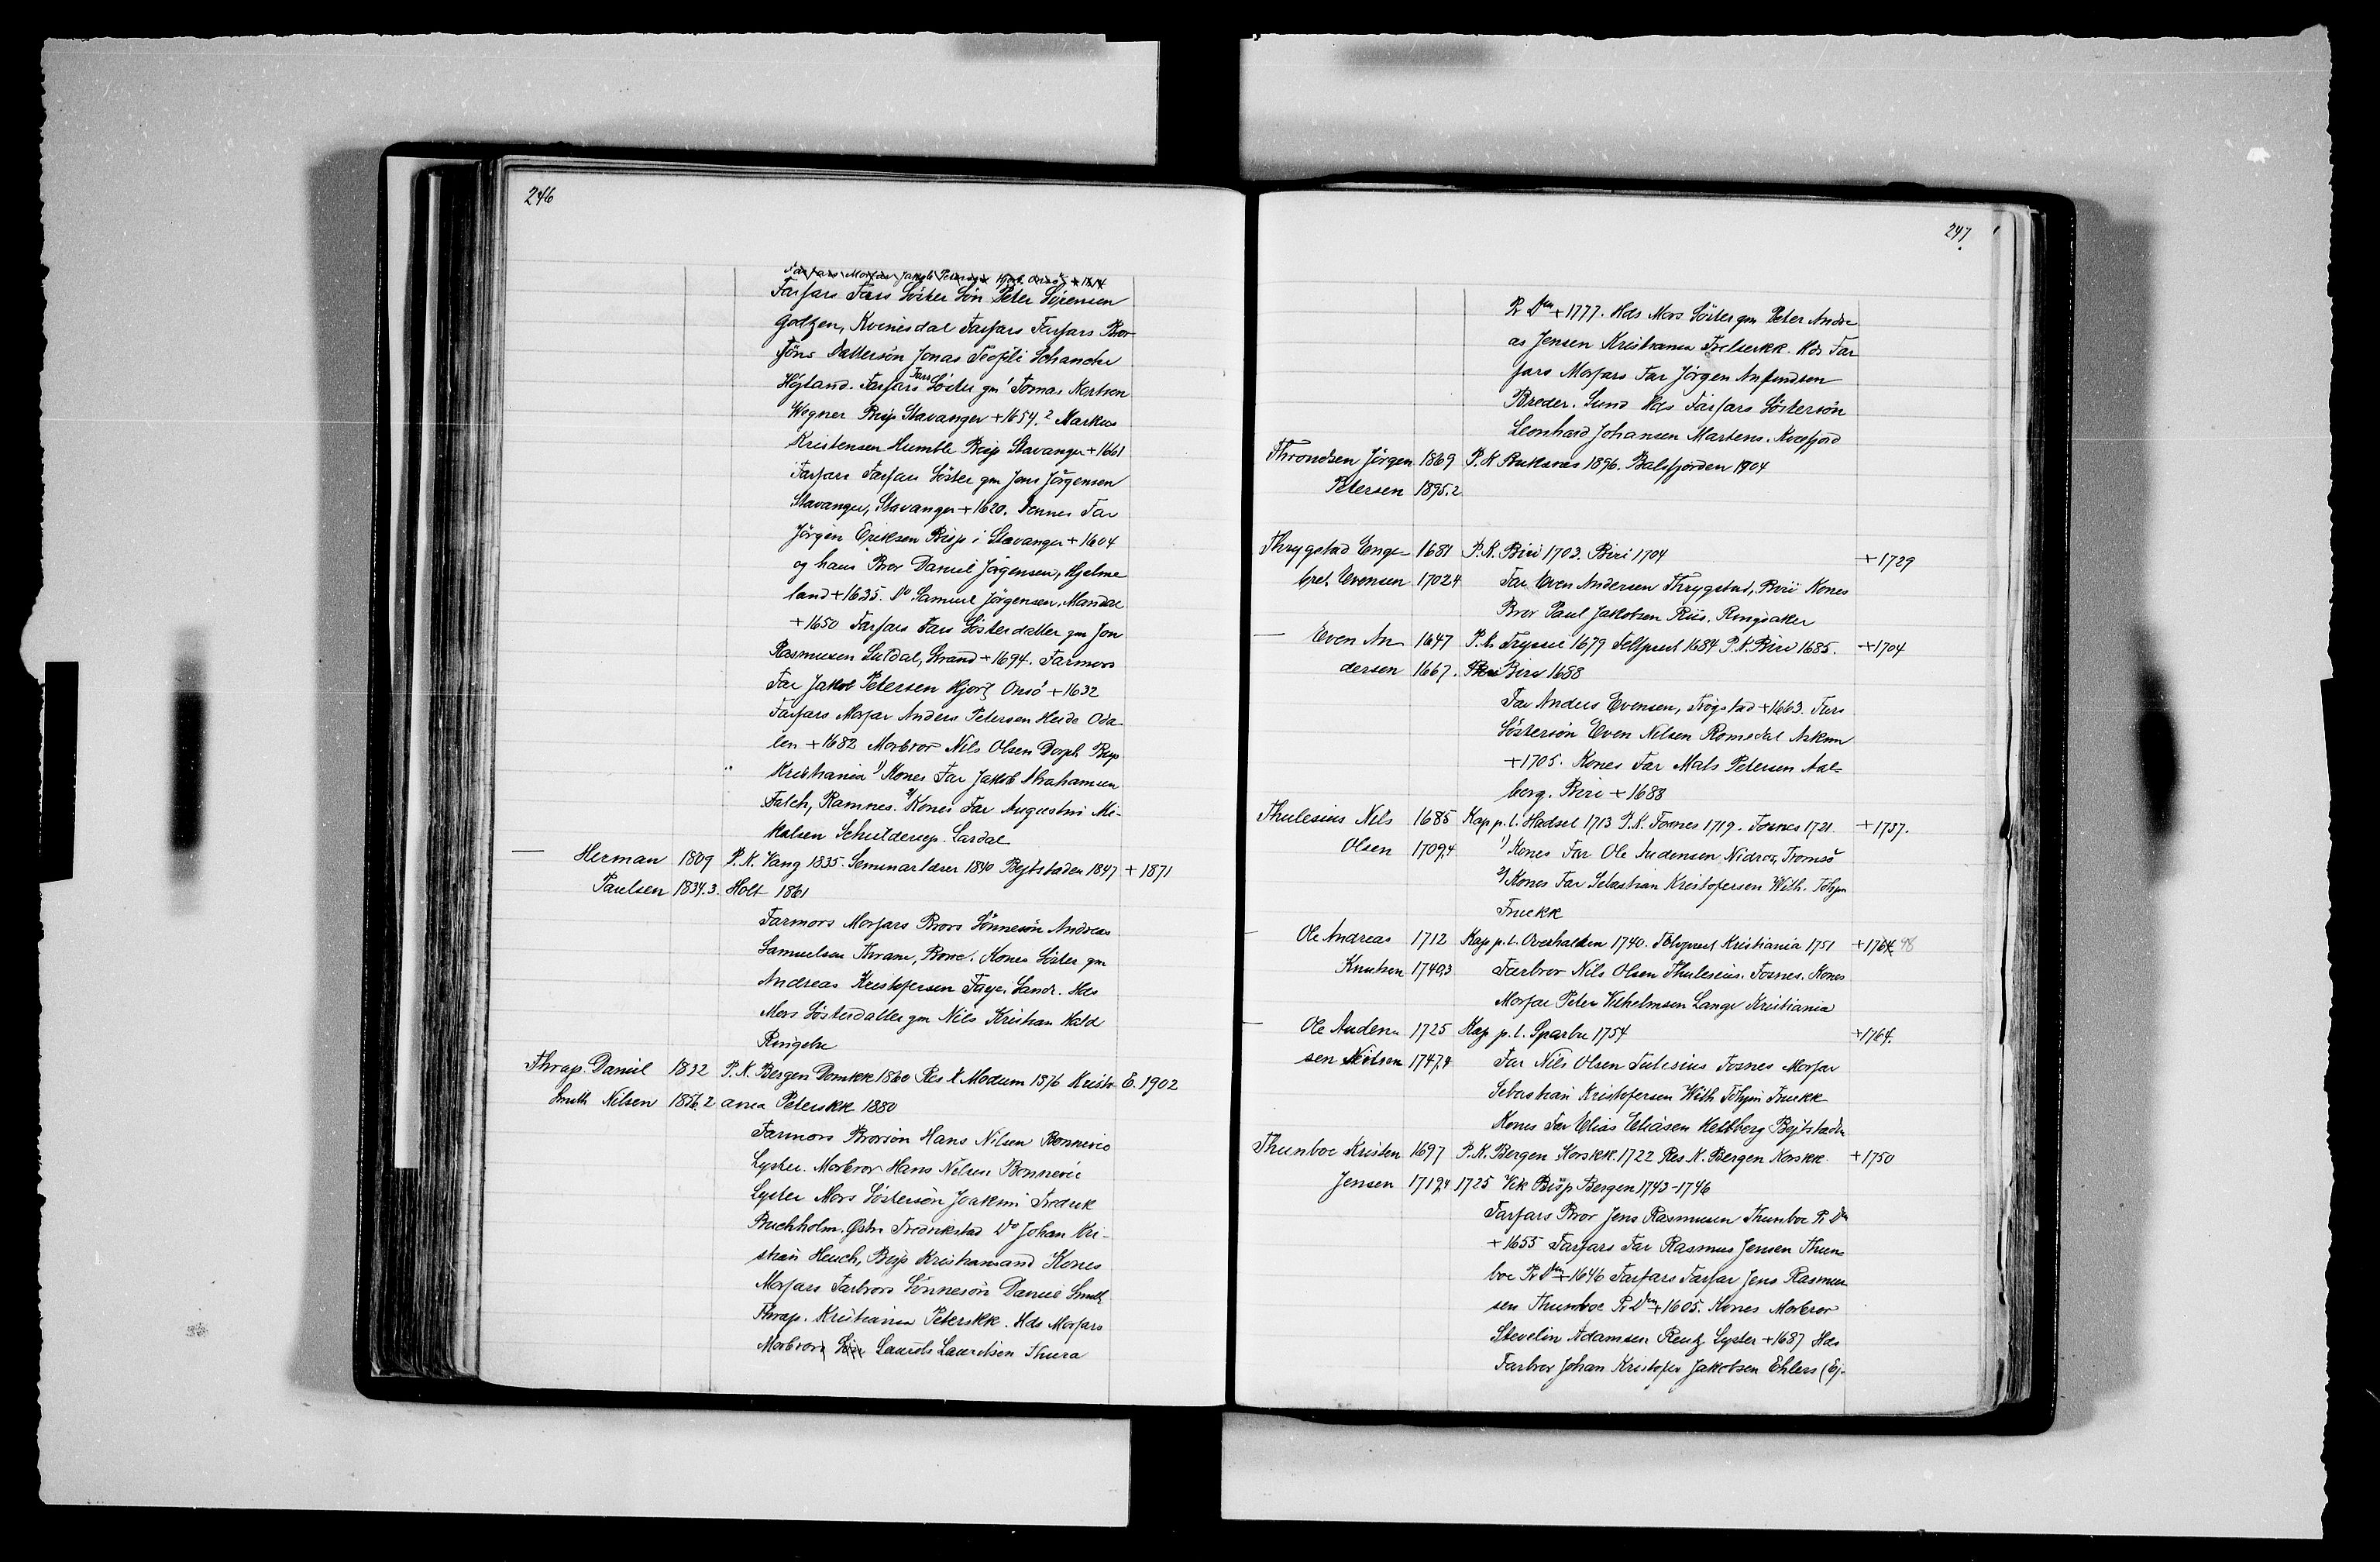 246
Farfars Fars Söster Sön Peter Sörensen
Godtzen, Kvinesdal Farfars Farfars Bror
Söns Dattersön Jonas Teofili Schancke
Höjland. Farfars Fars Söster gm 1 Tomas Kortsen
Wegner Bisp Stavanger +1654. 2 Markus
Kristensen Humble Bisp Stavanger +1661
Farfars Farfars Söster gm Jens Jörgensen
Stavanger, Stavanger +1620. Dennes Far
Jörgen Eriksen Bisp i Stavanger +1604
og hans Bror Daniel Jörgensen, Hjelme
land +1625. Do Samuel Jörgensen, Mandal
+1650 Farfars Fars Sösterdatter gm Jon
Rasmussen Suldal, Strand +1694. Farmors
Far Jakob Petersen Hjort Onsö +1632
Farfars Morfar Anders Petersen Heide Oda
len +1682 Morbror Nils Olsen Dorph Bisp
Kristiania 1) Kones Far Jakob Abrahamsen
Falch, Ramnes. 2) Kones Far Augustin Mi-
kalsen Schulderup. Sardal
— Herman 1809 P. K. Vang 1835. Seminarlærer 1840 Bejtstaden 1847 +1871
Paulsen 1834.3. Holt 1861
Farmors Morfars Brors Sönnesön Andreas
Samuelsen Thrane, Bone. Kones Söster gm
Andreas Kristofersen Faye. Sand. Hds
Mors Sösterdatter gm Nils Kristian Hald
Ringebu
Thrap. Daniel 1832 P. K. Bergen Domkk 1860 Res K Modum 1876 Kristi- E. 1902
Smith Nilsen 1856.2 ania Peterskk 1880
Farmors Brorsön Hans Nilsen Bonnevie
Lyster. Morbror Hans Nilsen Bonnevie
Lyster Mors Söstersön Joakim Fredrik
Buchholm. Östre Fredrikstad Do Johan Kri-
stian Heuch, Bisp Kristiansand Kones
Morfars Farbrors Sönnesön Daniel Smith
Thrap. Kristiania Peterskk. Hds Morfars
Morbror Laurits Lauritsen Thura
247
+1777. Hds Mors Söster gm Peter Andre
as Jensen Kristiania Frelserkk. Hds Far
fars Morfars Far Jörgen Anfindsen
Breder. Sund Hds Farfars Söstersön
Leonhard Johansen Martens. Kvæfjord
Throndsen Jörgen 1869 P. K Buksnes 1896. Balsfjorden 1904
Petersen 1895.2
Thrygstad Enge- 1681 P. K. Biri 1703. Biri 1704 +1729
bret Evensen 1702.4 Far Even Andersen Thrygstad, Biri Kones
Bror Paul Jakobsen Riis, Ringsaker
— Even An 1647 P. K. Trysil 1679 Feltprest 1684 P. K. Biri 1685. +1704
dersen 1667. Biri 1688
Far Anders Evensen, Trögstad +1663. Fars
Söstersön Even Nilsen Romedal Askim
+1705. Kones Far Mats Petersen Aal-
borg. Biri +1688
Thulesius Nils 1685 Kap p. l. Hadsel 1713 P. K. Fosnes 1719. Fosnes 1721. +1737.
Olsen 1709.4 1) Kones Far Ole Audensen Nidros, Tromsö
2) Kones Far Sebastian Kristofersen With. Töhjm
Fruekk
— Ole Andreas 1712 Kap p. l. Overhalden 1740. Töhprest Kristiania 1751 +1764 48
Knutsen 1740.3 Farbror Nils Olsen Thulesius. Fosnes. Kones
Morfar Peter Vilhelmsen Lange Kristiania
— Ole Auden- 1725 Kap p. l. Sparbu 1754 +1764.
sen Nilsen 1747.4 Far Nils Olsen Tulesius Fosnes Morfar
Sebastian Kristofersen With Töhjm Fruekk
Kones Far Elias Eliasen Heltberg Bejtstaden
Thunboe Kristen 1697 P. K. Bergen Korskk. 1722 Res K. Bergen Korskk. +1750
Jensen 1719.4 1725 Vik Bisp Bergen 1743-1746
Farfars Bror Jens Rasmussen Thunboe
+1655 Farfars Far Rasmus Jensen Thun-
boe +1646 Farfars Farfar Jens Rasmus
sen Thunboe +1605. Kones Morbror
Stevelin Adamsen Reutz Lyster +1687 Hds
Farbror Johan Kristofer Jakobsen Ehlers (Ej-